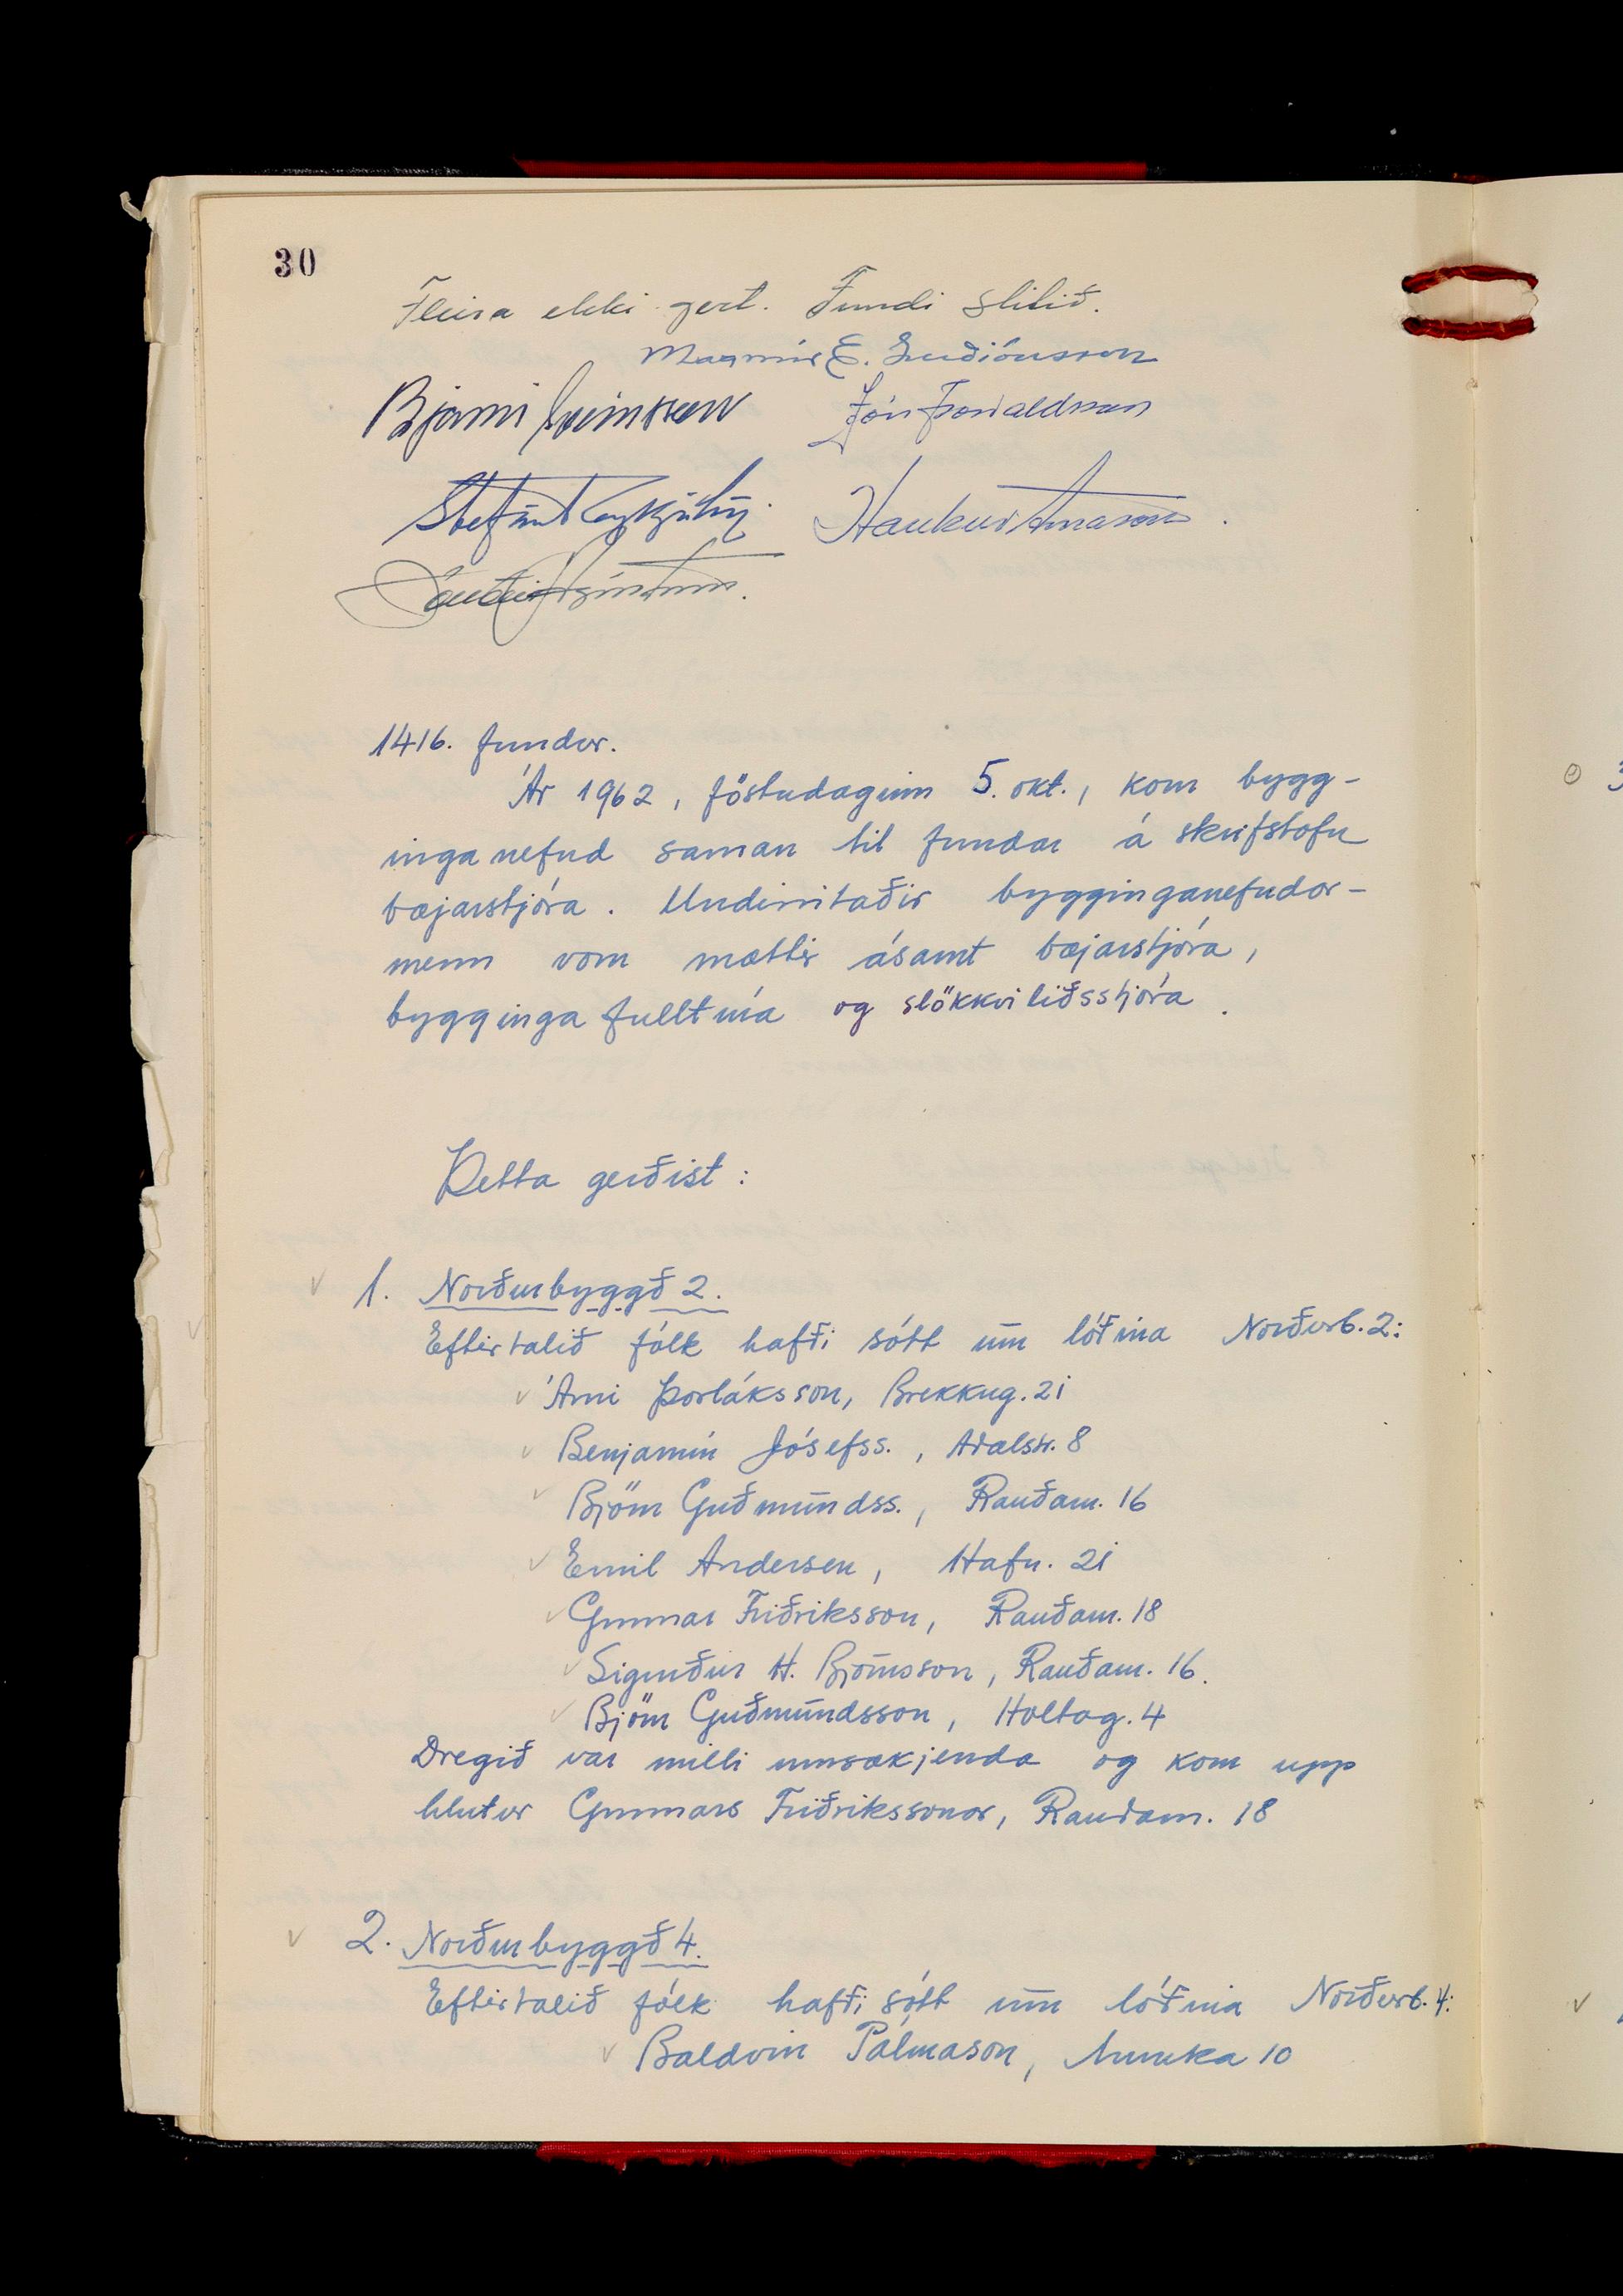 30
Fleira ekki gert. Fundi slitið.
Magnús E. Guðjónsson
Bjarni Sveinsson Jón Þorvaldsson
Stefán Reykjalín. Haukur Árnason.
1416. fundur.
Ár 1962, föstudaginn 5. okt., kom bygg-
inganefnd saman til fundar á skrifstofu
bæjarstjóra. Undirritaðir bygginganefndar-
menn voru mættir ásamt bæjarstjóra,
byggingafulltrúa og slökkviliðsstjóra.
Þetta gerðist:
1. Norðurbyggð 2.
Eftirtalið fólk hafði sótt um lóðina Norðurb. 2:
Árni Þorláksson, Brekkug. 21
Benjamín Jósefss., Aðalstr. 8
Björn Guðmundss., Rauðam. 16
Emil Andersen, Hafn. 21
Gunnar Friðriksson, Rauðam. 18
Sigurður H. Björnsson, Rauðam. 16.
Björn Guðmundsson, Holtag. 4
Dregið var milli umsækjenda og kom upp
hlutur Gunnars Friðrikssonar, Rauðam. 18
2. Norðurbyggð 4.
Eftirtalið fólk hafði sótt um lóðina Norðurb. 4:
Baldvin Pálmason, 10